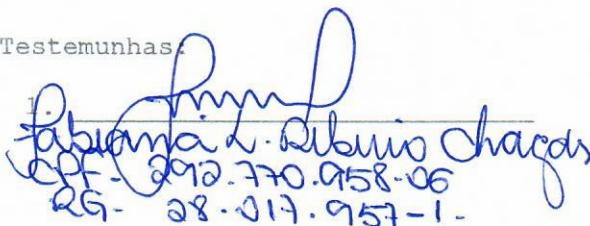 Testemunhas:
1.
Fabiana L. Ribeiro Chagas
CPF- 292.770.958-06
RG- 28.017.957-1-